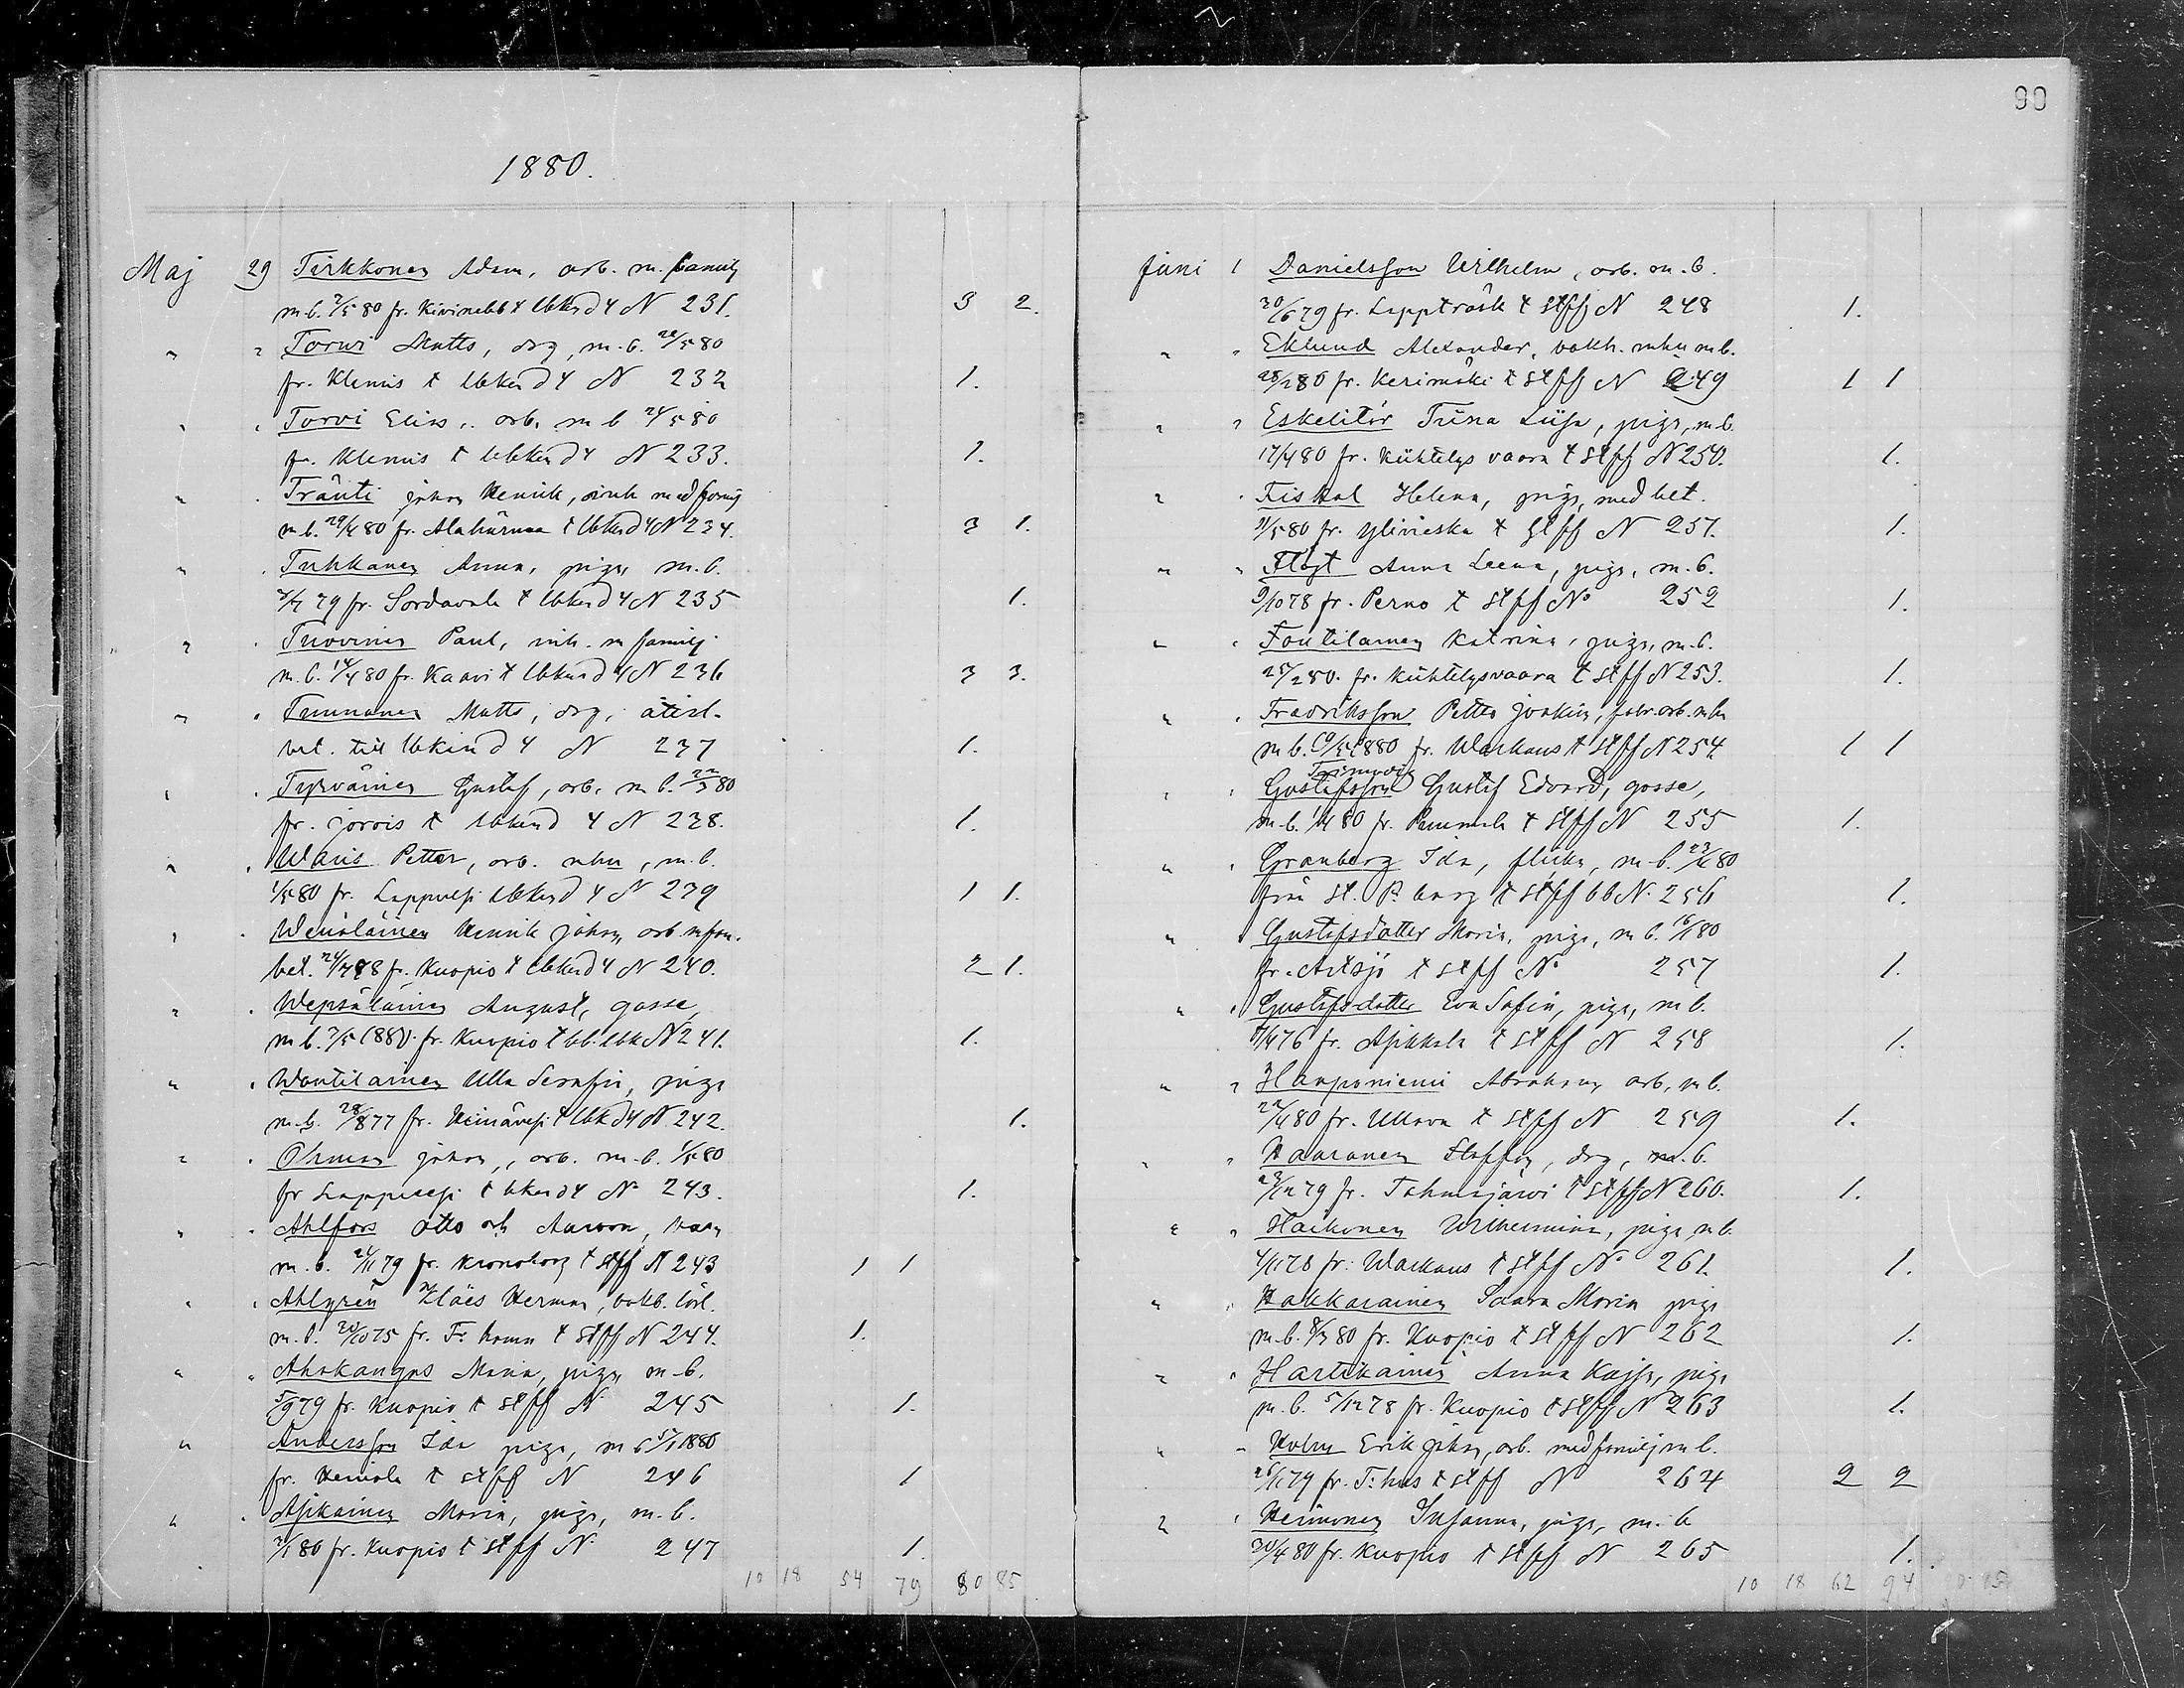 90
1880.
Maj 29 Tirkkonen Adam, arb. m. familj
m. b. 2/5 80 fr. Kivinebb t. Ubkrd 4 N 231. 3 2.
" " Torvi Matts, drg, m. b. 24/5 80
fr. Klemis t Ubkrd 4 N 232 1.
" " Torvi Elias, arb. m b 24/5 80
fr. Klemis t Ubkrd 4 N 233. 1.
" " Tränti Johan Henrik, med familj
m. b. 29/4 80 fr. Alahärmä t Ubkrd 4 N 234. 3 1.
" " Tuhkanen Anna, piga m. b.
79 fr. Sordavala t Ubkrd 4 N 235 1.
" " Tuovinen Paul, inh. m familj
m. b. 14/4 80 fr. Kaavi t Ubkrd 4 N 236 3 3.
" " Matts, drg, återl.
bet. till Ubkrd 4 N 237 1.
" " Tyrväinen Gustaf, arb. m b. 22/3 80
fr. Jorois t Ubkrd 4 N 238. 1.
" " Waris Petter, arb. mhu, m. b.
1/5 80 fr. Lappvesi Ubkrd 4 N 239 1 1.
" " Wenäläinen Henrik Johan, arb m fam.
bet. fr. Kuopio t Ubkrd 4 N 240. 2 1.
" " Wepsäläinen August, gosse,
m b. 7/5 1880. fr. Kuopio t bb. Ubk N 241. 1.
" " Wontilainen Ulla Serafin, piga
m. b. 28/8 77 fr. Heinävesi t Ubkd 4 N. 242. 1.
" " Öhman Johan, arb. m. b. 1/5 80
fr Lappvesi t Ubkrd 4 N. 243. 1.
" " Ahlfors Otto och Aurora,
m. b. 79 fr. Kronoborg t Stff N 243 1 1
" " Ahlgren Kläes Herman,
m. b. 20/10 75 fr. F:hamn t Stff N 244. 1.
" " Ahokangas Maria, piga m. b.
5/9 79 fr. Kuopio t Stff N 245 1.
" Andersson Ida piga, m b 1880
fr. Heinola t Stff N 246 1
" " Asikainen Maria, piga, m. b.
80 fr. Kuopio t Stff N. 247 1.
10 18 54 79 80 85
Juni 1 Danielsson Wilhelm, arb. m. b.
30/6 79 fr. Lappträsk t Stff N 248 1.
" " Eklund Alexander, vakh. mhu m b.
28/2 80 fr. Kerimäki t Stff N 249 1 1
" " Eskelitär Tiina Liisa, piga, m. b.
17/4 80 fr. Kiihtelysvaara t Stff N 250. 1.
" " Fiskal Helena, piga, med bet.
80 fr. Ylivieska t Stff N 251. 1.
" " Flöjt Anna Leena, piga, m. b.
9/10 78 fr. Perno t Stff No 252 1.
" " Fontilainen Katrina, piga, m. b.
25/2 80. fr. Kiihtelysvaara t Stff N 253. 1.
" " Fredriksson Petter Joakim, fabr. arb. mhu
m b. 1880 fr. Warkaus t Stff N 254. 1 1
" " Gustafsson Gustaf Edvard, gosse,
m. b. 80 fr. t Stff N 255 1.
" " Granberg Ida, flicka, m. b. 80
från St. P. burg t Stff bb N. 256 1.
" " Gustafsdotter Maria, piga, m b. 80
fr. Artsjö t Stff No 257 1.
" " Gustafsdotter Eva Sofia, piga, m b.
76 fr. Asikkala t Stff N 258 1.
" " Haaponiemi Abraham arb, m b.
22/4 80 fr. Ullava t Stff N 259 1.
" " Haaranen Staffan, drg, m. b.
79 fr. Tohmajärvi t Stff N 260. 1.
" " Haikonen Wilhelmina, piga, m b.
78 fr. Warkaus t Stff No 261. 1.
" " Hakkarainen Saara Maria piga
m. b. 8/3 80 fr. Kuopio t Stff N 262 1.
" " Hartikainen Anna Kajsa, piga
m. b. 5/12 78 fr. Kuopio t Stff N 263 1.
" " Holm Erik Johan, arb. med familj m b.
79 fr. T:hus t Stff No 264 2 2
" " Heimonen Susanna, piga, m. b
30/4 80 fr. Kuopio t Stff N 265 1.
10 18 62 94